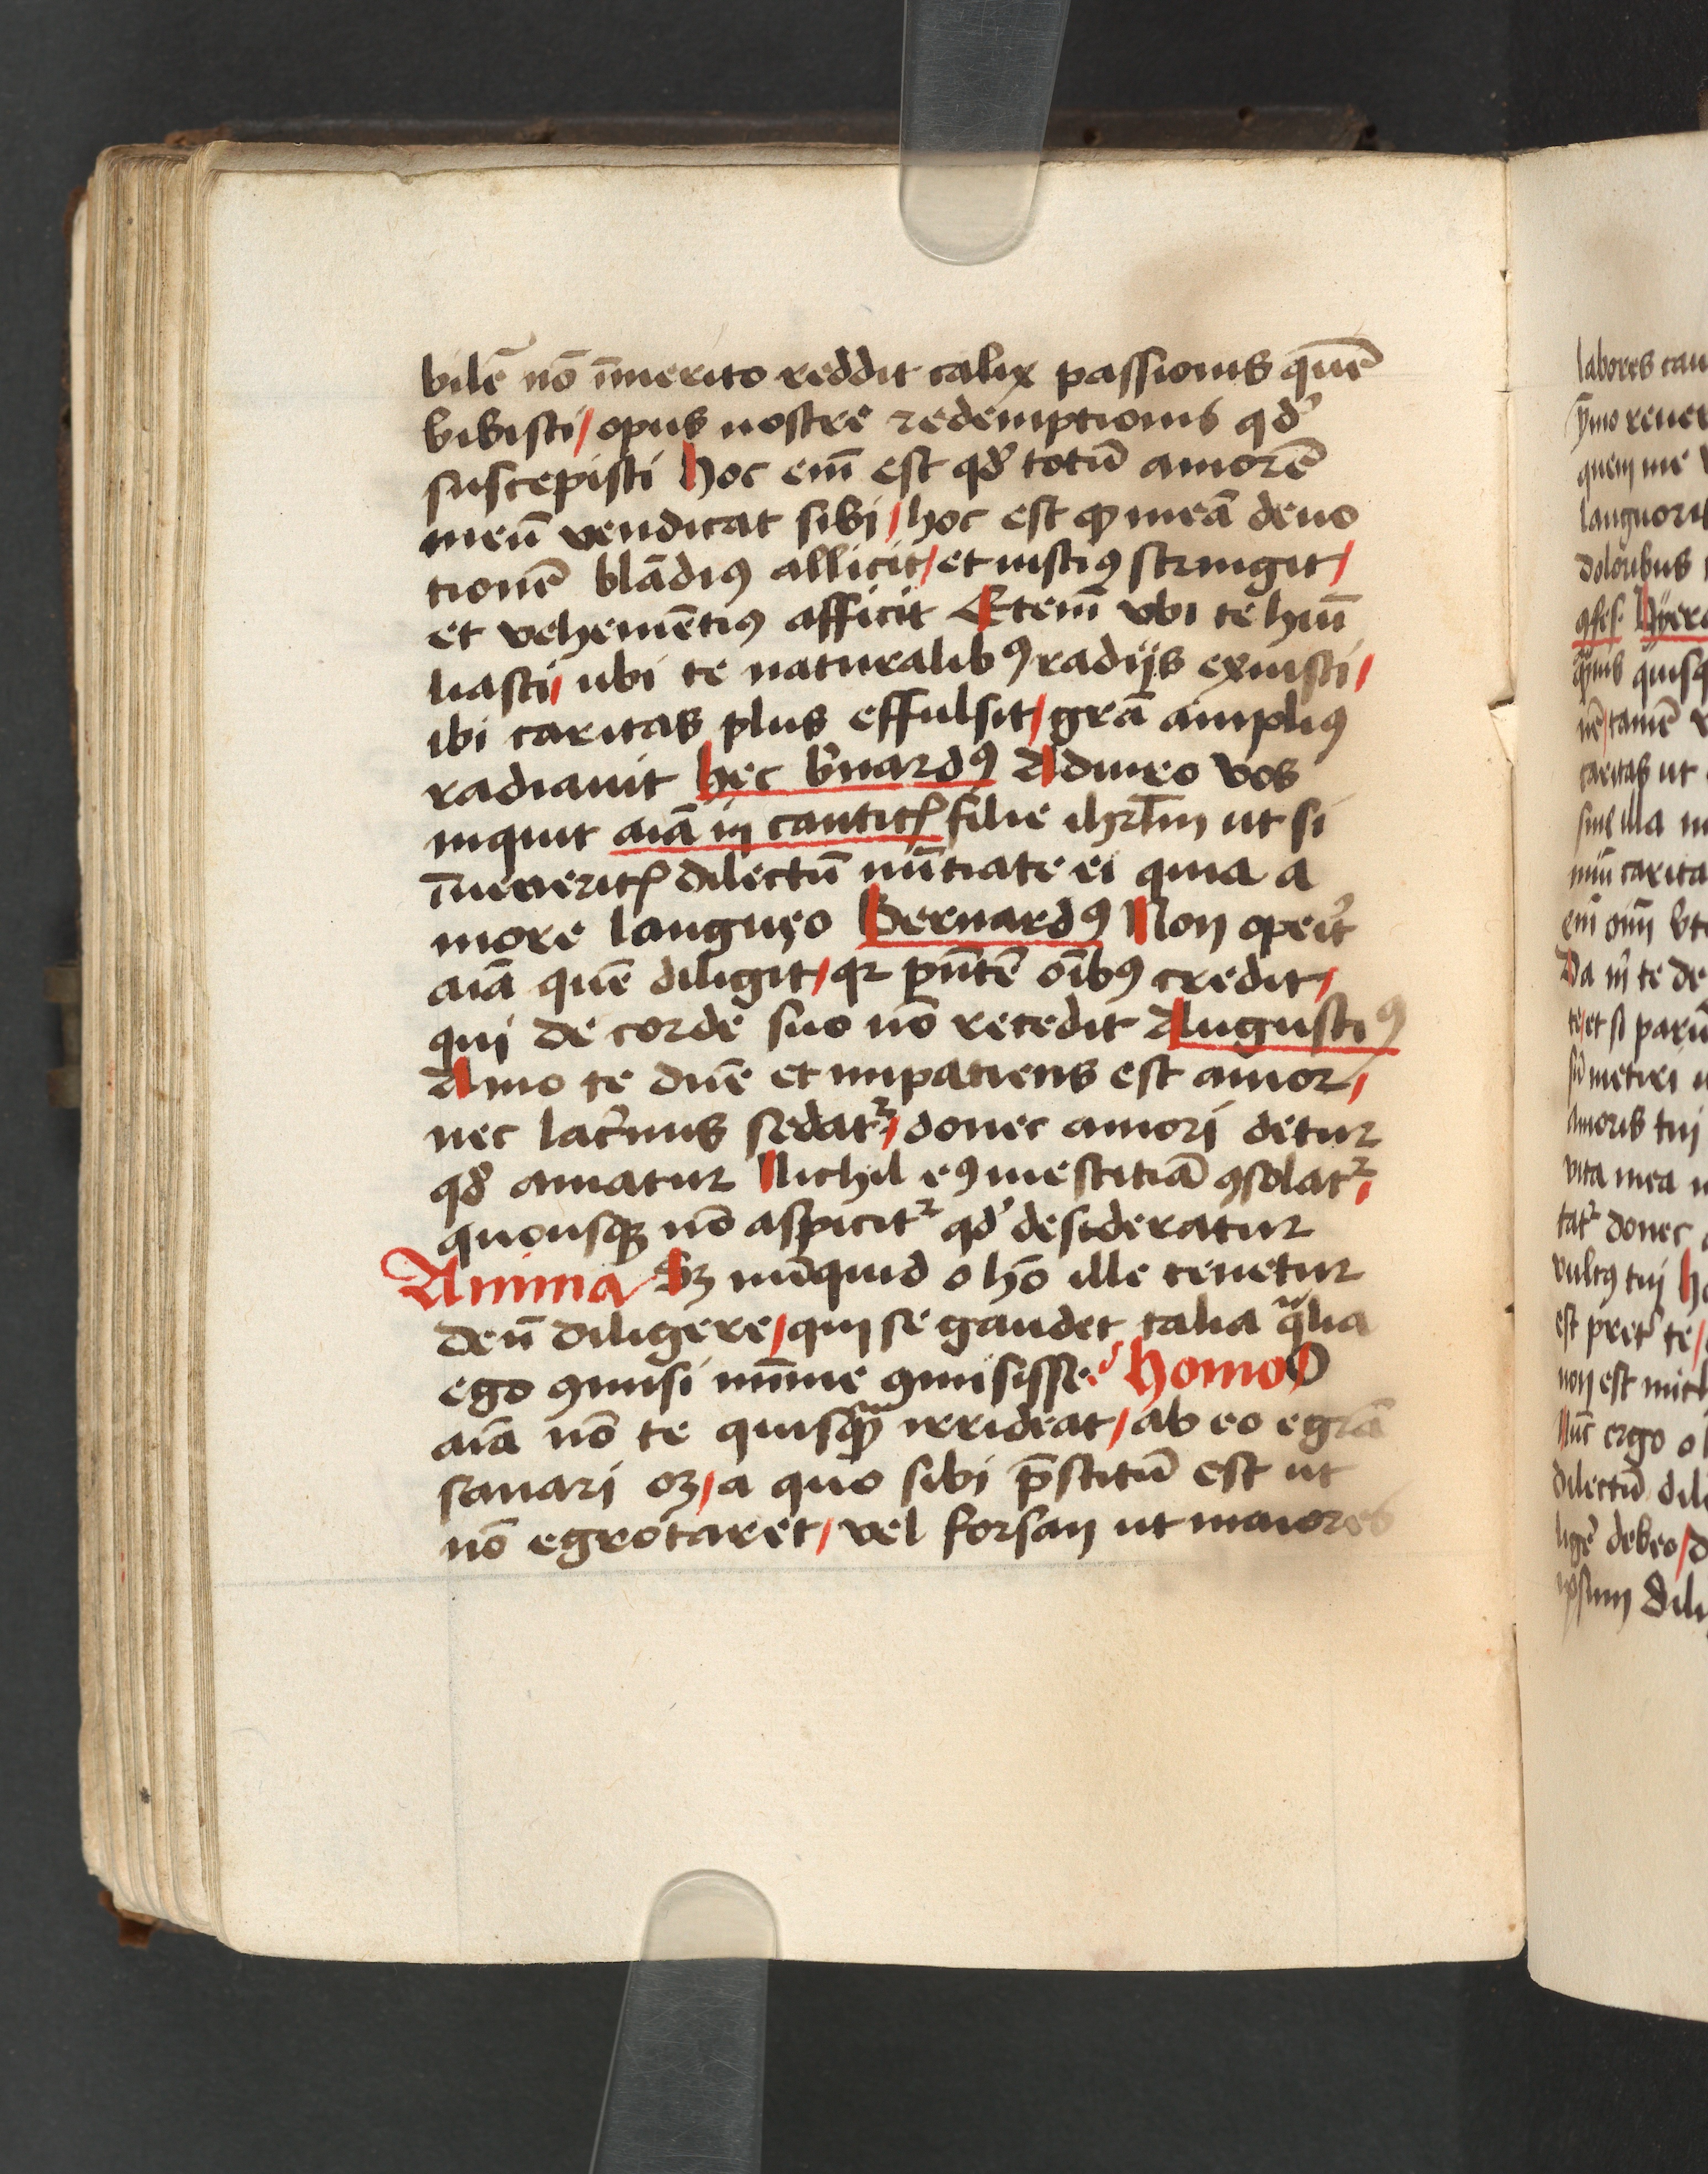 bilē nō īmerito reddit calix passionis quē
bibisti / opus nostre redemptionis qd̕
suscepisti Hoc em̄ est qd̕ totū amorē
meū vendicat sibi / hoc est qƺ meā deuo
tionē blādiꝰ allicit / et iustiꝰ stringit /
et vehemētiꝰ afficit Etem̄ vbi te humī
liasti / ubi te naturalibꝰ radijs exuisti /
ibi caritas plus effulsit / grā ampliꝰ
radiauit Hec b̕nardꝰ Adiuro vos
inquit aīa in canticꝭ filie ihrl̄m ut si
īueneritꝭ dilectū nūtiate ei quia a
more langueo Bernardꝰ Non operit̕
aīa quē diligit / qꝛ pn̄tē oībꝰ credit /
qui de corde suo nō recedit Augustiꝰ
Amo te dn̄e et impatiens est amor /
nec lac̕mis sedatᷣ / donec amori detur
qd̕ amatur Nichil eꝰ mestitiā ꝯsolatᷣ /
quousqꝫ nō aspicitᷣ qd̕ desideratur
Anima Sꝫ nūquid o hō ille tenetur
deū diligere / qui se gaudet talia qͣlia
ego ꝯmisi mīme ꝯmisisse. Homo O
aīa nō te quisqꝫ̄ irrideat / ab eo egrā
sanari oꝫ / a quo sibi p̄stitū est ut
nō egrotaret / vel forsan ut maiores
labores cau
quem me
languori
doloribus
ꝯfes. Hyero
nē / tamē
caritas ut
sine illa
miū carita
Da m̄ te de
te / et si parū
amoris tui
vita mea
tatᷣ donec
vultꝰ tui
est pret̕ te /
non est mich
Nūc ergo o
dilectū dili
ligē debeo /
ipsum Dili